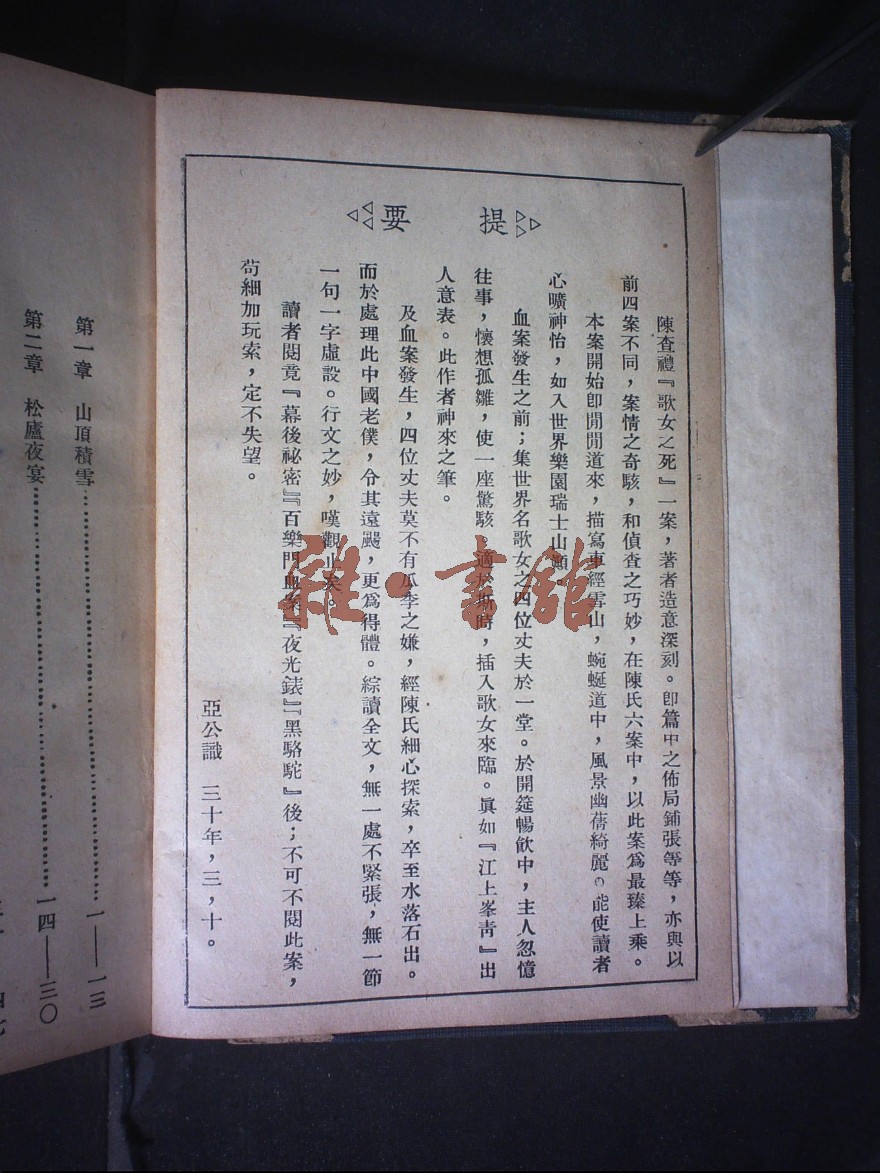 提要
陳查禮『歌女之死』一案，著者造意深刻。卽篇中之佈局鋪張等等，亦與以
前四案不同，案情之奇駭，和偵查之巧妙，在陳氏六案中，以此案爲最臻上乘。
本案開始卽閒閒道來，描寫車經雪山，蜿蜒道中，風景幽蒨綺麗。能使讀者
心曠神怡，如入世界樂園瑞士山巔
血案發生之前；集世界名歌女之四位丈夫於一堂。於開筵暢飲中，主人忽憶
往事，懷想孤雛，使一座驚駭，適於斯時，插入歌女來臨。眞如『江上峯靑』出
人意表。此作者神來之筆。
及血案發生，四位丈夫莫不有瓜李之嫌，經陳氏細心探索，卒至水落石出。
而於處理此中國老僕，令其遠颺，更爲得體。綜讀全文，無一處不緊張，無一節
一句一字虛設。行文之妙，嘆觀止矣。
讀者閱竟『幕後祕密』『百樂門血案』『夜光錶』『黑駱駝』後；不可不閱此案，
苟細加玩索，定不失望。
亞公識　三十年，三，十。
第一章　山頂積雪……一——一三
第二章　松廬夜宴……一四——三〇
雜·書館